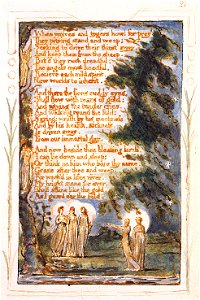 When wolves and tygers howl for prey
They pitying stand and weep;
Seeking to drive their thirst away,
And keep them from the sheep,
But if they rush dreadful;
The angels most heedful,
Recieve each mild spirit
New worlds to inherit.
And there the lions ruddy eyes,
Shall flow with tears of gold:
And pitying the tender cries,
And walking round the fold:
Saying: wrath by his meekness
And by his health, sickness,
Is driven away,
From our immortal day.
And now beside thee bleating lamb,
I can lie down and sleep;
Or think on him who bore thy name,
Graze after thee and weep.
For wash'd in lifes river,
My bright mane for ever,
Shall shine like the gold,
As I guard o'er the fold.